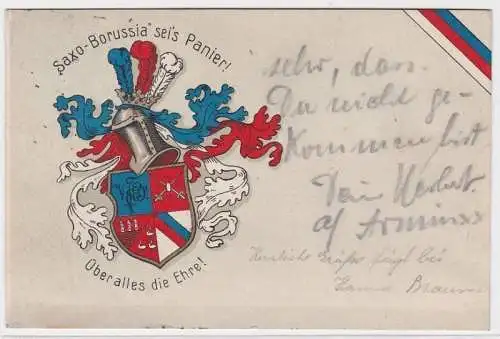 Saxo-Borussia sei's Panier!
Über alles die Ehre!
sehr, dass
Du nicht ge-
kommen bist
Dein Herbert
Herzliche Grüße fügt bei
Braun